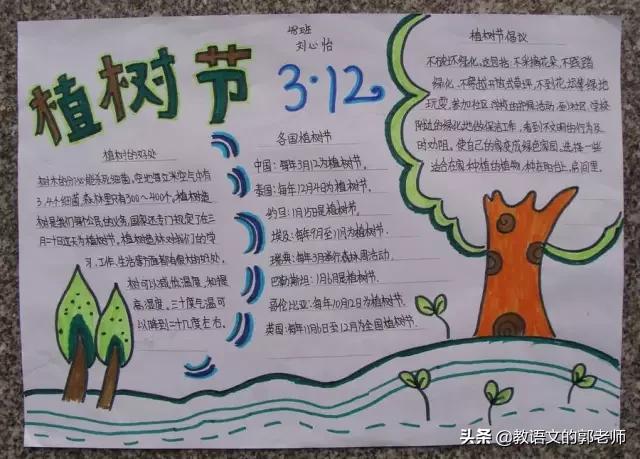 植树节
48班
刘心怡
3·12
植树的好处
树木的分泌能杀死细菌，空地每立米空气中有
3.4个细菌，森林里只有300～400个，植树造
树是我们每个公民的义务，国家还专门规定了在三
月十二日这天为植树节，植树造林对我们的学
习、工作、生活等方面都有很大的好处，
树可以降低温度，和提
高湿度，三十度气温可
以降到二十几度左右。
各国植树节
中国：每年3月12为植树节，
泰国：每年12月4为植树节，
约旦：1月15是植树节，
埃及：每年9月至11月为植树节，
瑞典：每年3月举行森林周活动，
巴勒斯坦：1月6是植树节，
哥伦比亚：每年10月12日为植树节，
英国：每年11月6至12月为全国植树节，
植树节倡议
不破坏绿化，这包括：不采摘花朵、不践踏
绿化、不穿越开放式草坪，不到花坛等绿地
玩耍，参加社区、学校的环保活动，到社区、学校
附近的绿化地做保洁工作，看到不文明的行为及
时劝阻，使自己的家变成绿色家园，选择一些
适合在家种植的植物，种在阳台上、房间里。
头条 @教语文的郭老师